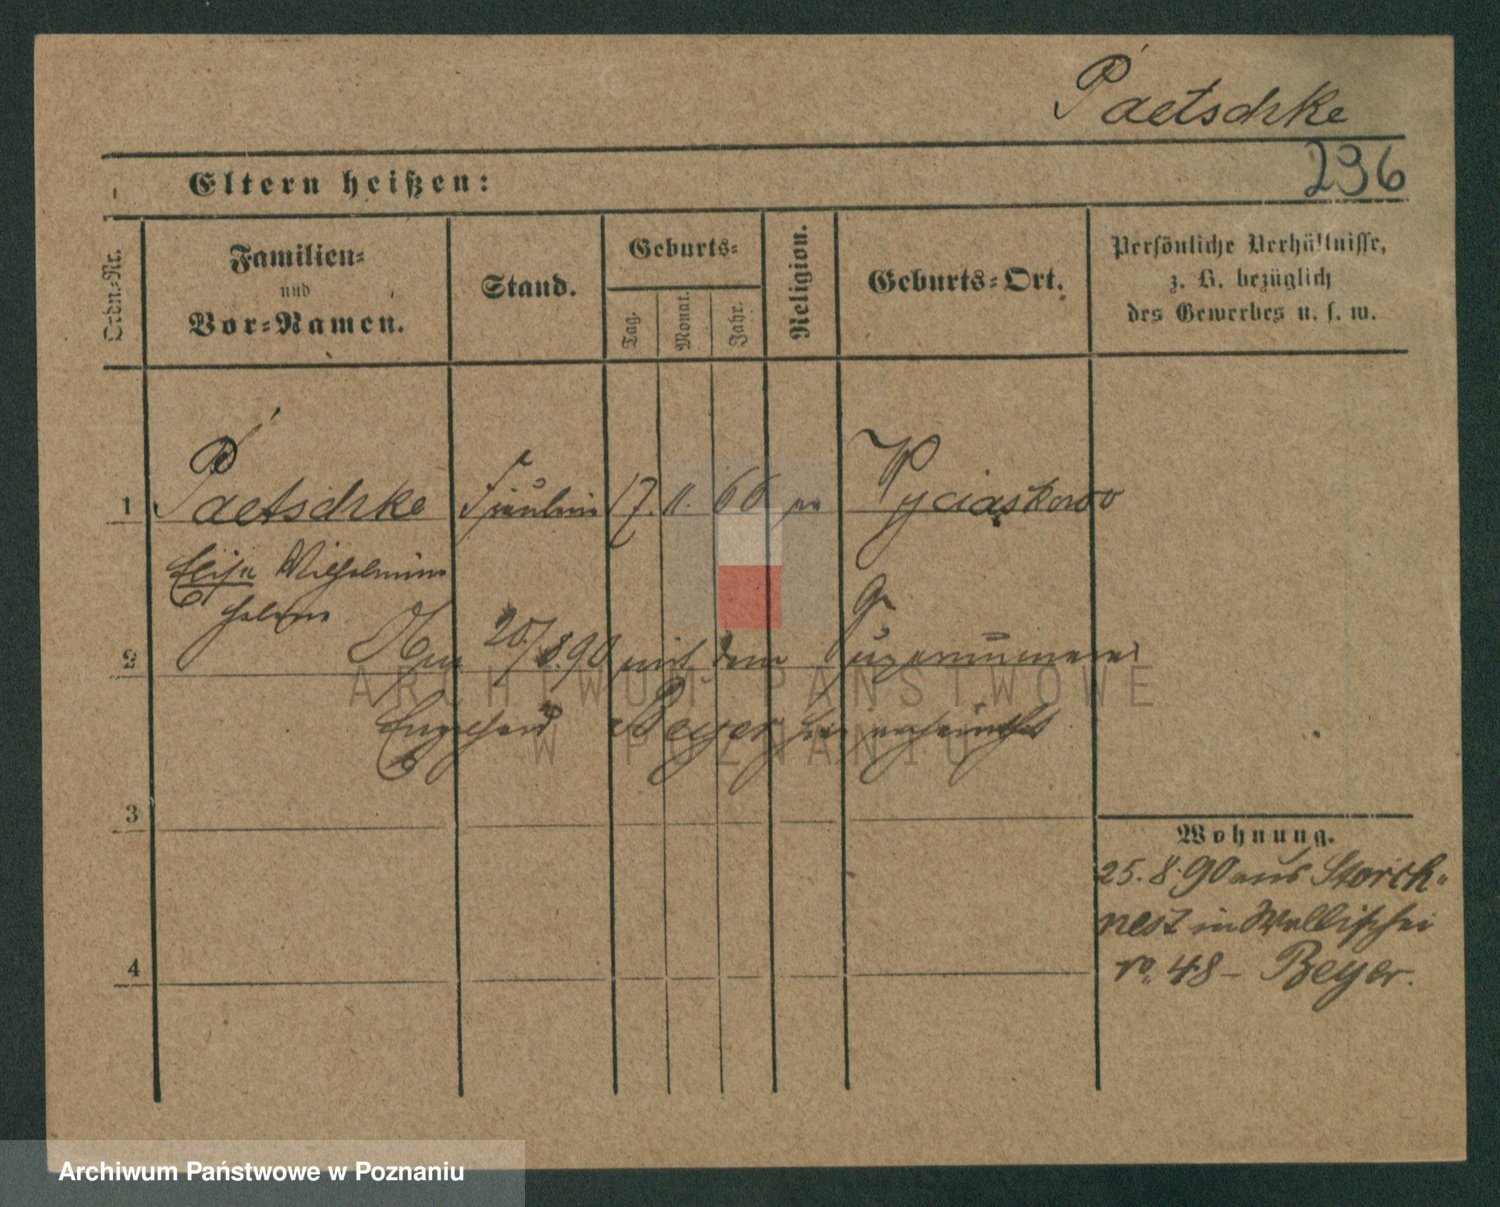 Paetschke
236
Eltern heißen:
Ordn.-Nr.
Familien-
und
Vor-Namen.
Stand.
Geburts-
Tag.
Monat.
Jahr.
Religion.
Geburts-Ort.
Persönliche Verhältnisse,
z. B. bezüglich
des Gewerbes u. s. w.
1 Paetschke Fräulein 17. 11. 66
Elise Wilhelmine
Helene
2 Am 20./8. 90 mit dem
Engelhard Beyer
3
4
Wohnung.
25. 8. 90 aus Storch-
nest in Wallischei
No. 48 – Beyer.
ARCHIWUM PAŃSTWOWE
W POZNANIU
Archiwum Państwowe w Poznaniu